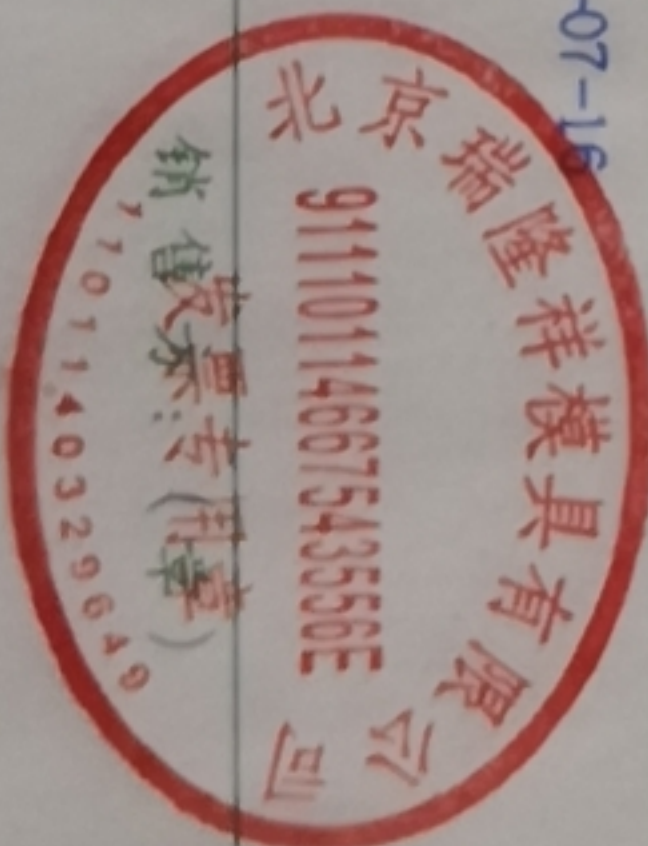 -07-16
北京瑞隆祥模具有限公司
91110114667543556E
发票专用章
销售方:(章)
1101140329649